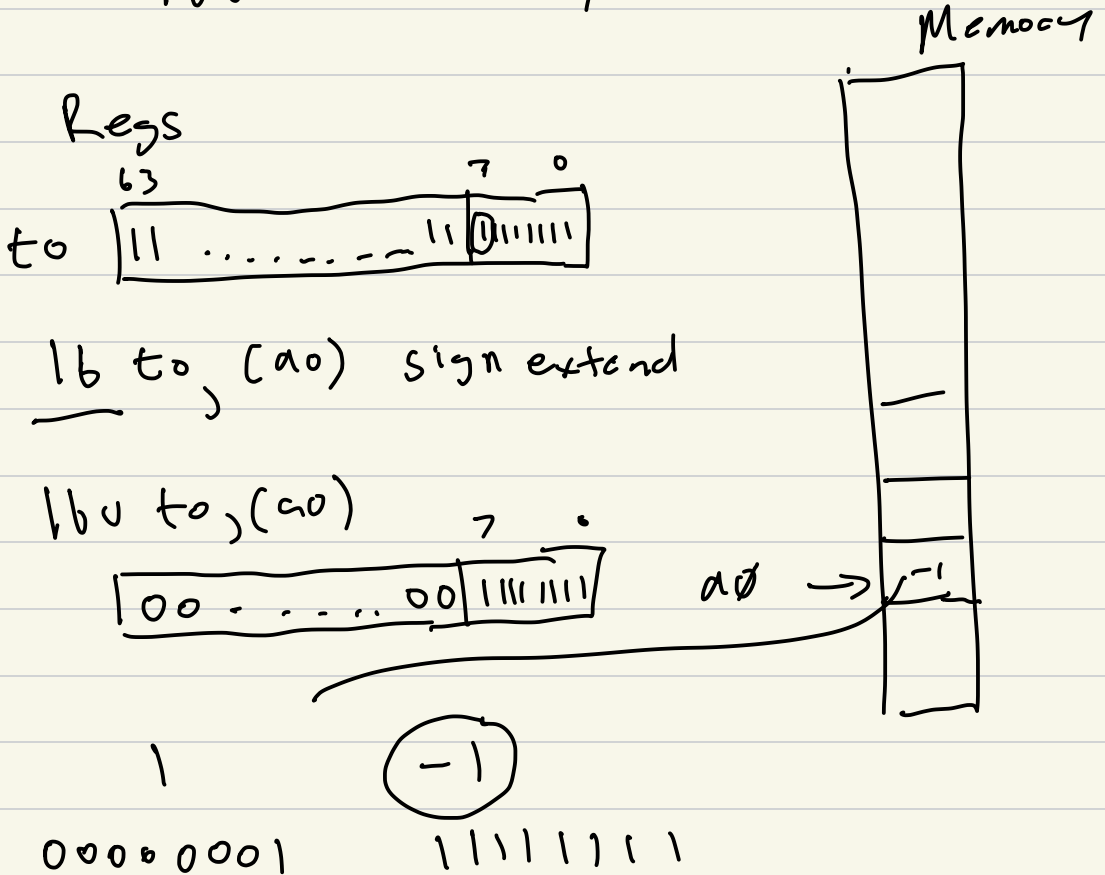 Memory
Regs
63 7 0
t0 11 ........ 11 11111111
lb t0, (a0) sign extend
lbu t0, (a0)
7 0
00 - . . . . . 00 11111111
a0 → -1
1 -1
00000001 11111111